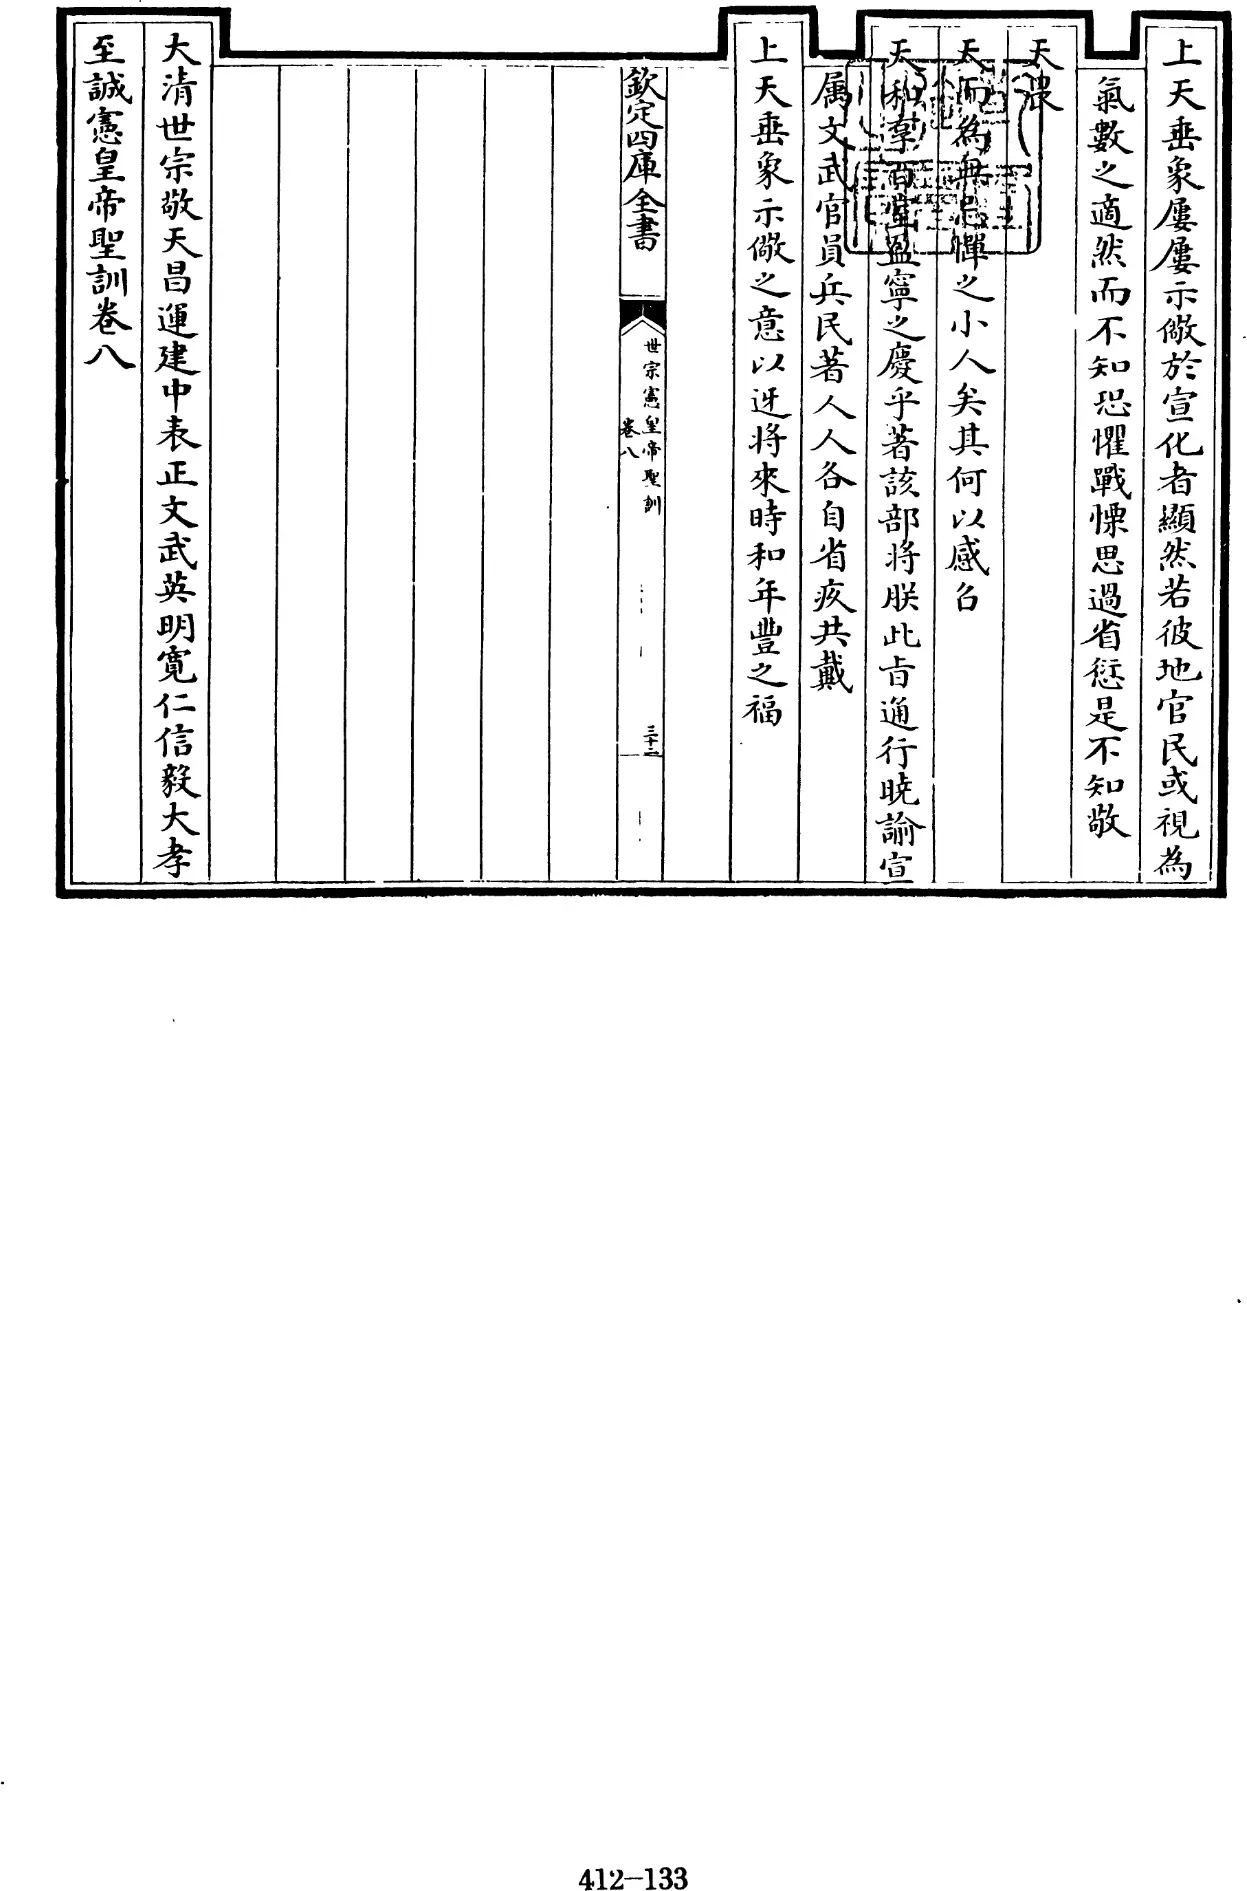 上天垂象屢屢示儆於宣化者顯然若彼地官民或視為
氣數之適然而不知恐懼戰慄思過省愆是不知敬
天畏
天而為無忌憚之小人矣其何以感召
天和享百室盈寧之慶乎著該部將朕此旨通行曉諭宣
属文武官員兵民著人人各自省疚共戴
上天垂象示儆之意以迓將來時和年豐之福
欽定四庫全書
世宗憲皇帝聖訓
卷八
三十二
大清世宗敬天昌運建中表正文武英明寬仁信毅大孝
至誠憲皇帝聖訓卷八
412-133